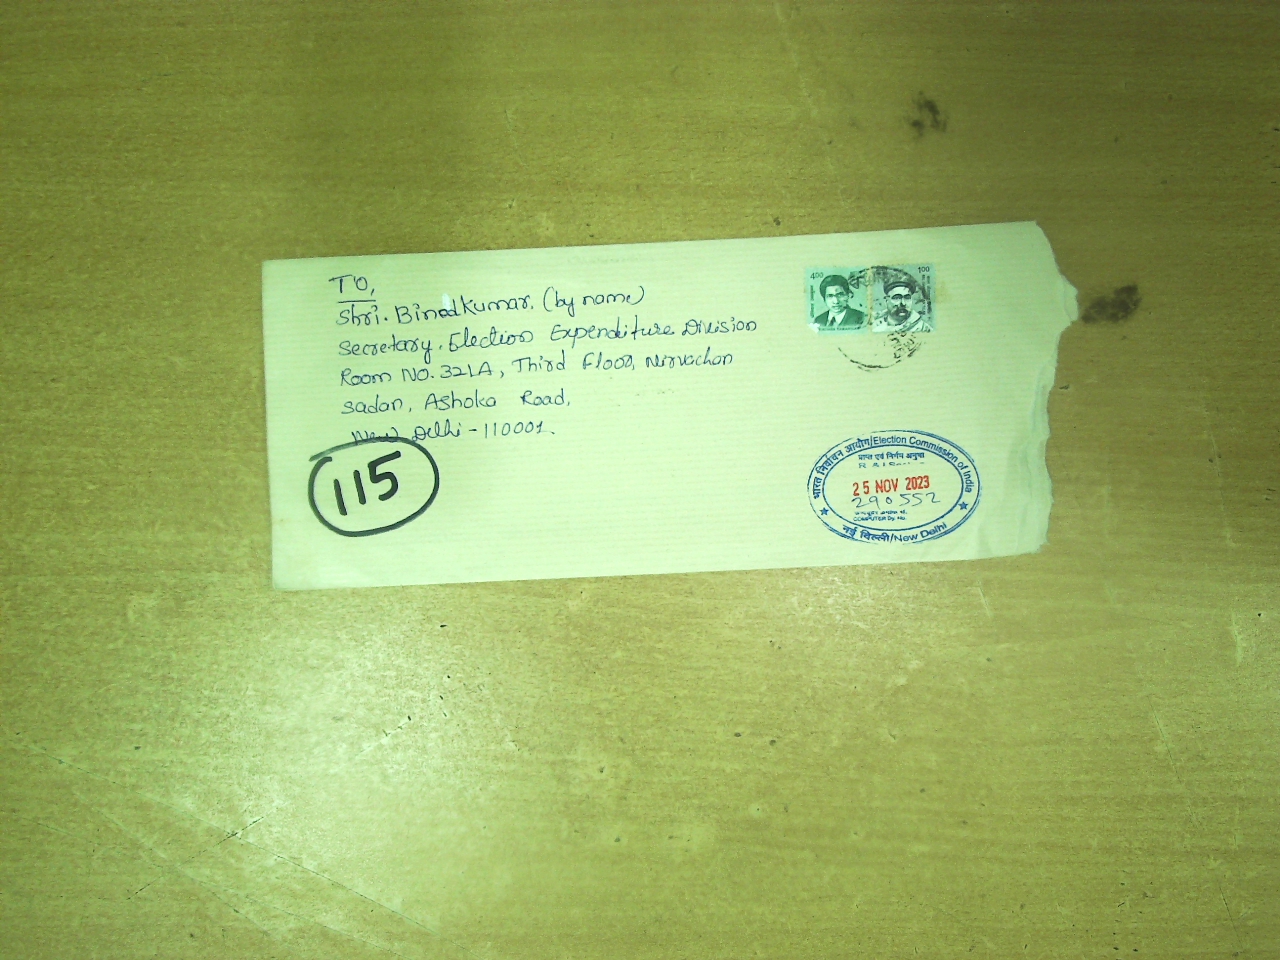 To,
Shri. Binod Kumar. (by name)
Secretary, Election Expenditure Division
Room No. 321A, Third Floor, Nirvachan
Sadan, Ashoka Road,
New Delhi - 110001.
115
400
100
भारत निर्वाचन आयोग/Election Commission of India
प्राप्त एवं निर्गम अनुभाग
25 NOV 2023
290552
COMPUTER Dy. No.
नई दिल्ली/New Delhi